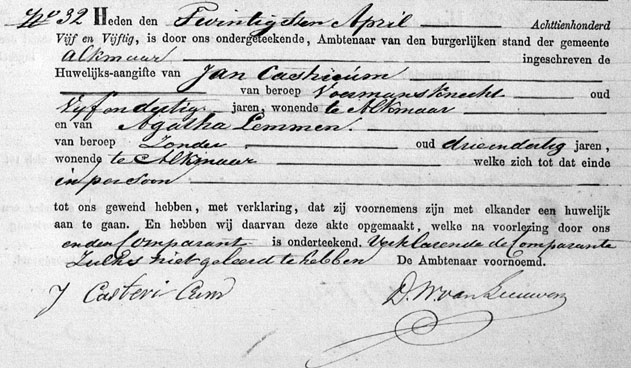 No 32 Heden den Twintigsten April Achttienhonderd
Vijf en Vijftig, is door ons ondergeteekende, Ambtenaar van den burgerlijken stand der gemeente
Alkmaar ingeschreven de
Huwelijks-aangifte van Jan Castricum
van beroep Voermansknecht oud
Vyf en dertig jaren, wonende te Alkmaar
en van Agatha Lemmen.
van beroep Zonder oud drieendertig jaren,
wonende te Alkmaar welke zich tot dat einde
in persoon
tot ons gewend hebben, met verklaring, dat zij voornemens zijn met elkander een huwelijk
aan te gaan. En hebben wij daarvan deze akte opgemaakt, welke na voorlezing door ons
en den Comparant is onderteekend. Verklarende de Comparante
Zulks niet geleerd te hebben De Ambtenaar voornoemd.
J Casteri Cum D. W. van Leeuwen